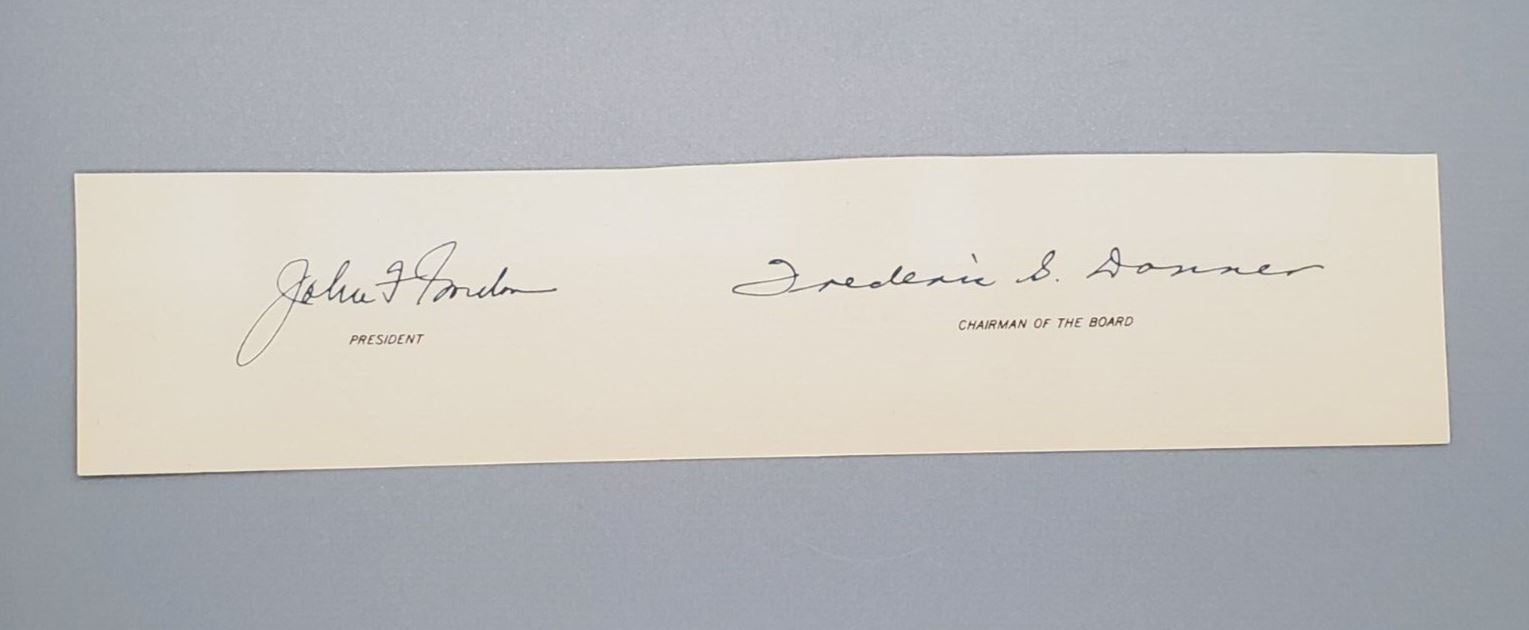 John F Gordon Frederic G. Donner
PRESIDENT CHAIRMAN OF THE BOARD